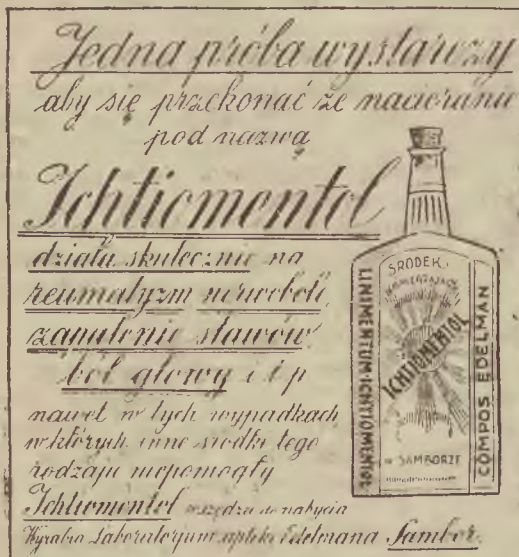 Jedna próba wystarczy
aby się przekonać że nacieranie
pod nazwą
Ichtiomentol
działa skutecznie na
reumatyzm nerwobóle,
zapalenie stawów
ból głowy i t p
nawet w tych wypadkach
w których inne środki tego
rodzaju niepomogły
Ichtiomentol wszędzie do nabycia
Wyrabia Laboratorjum apteki Edelmana Sambor.
ŚRODEK
UŚMIERZAJĄCY
ICHTIOMENTOL
w SAMBORZE
LINIMENTUM ICHTIOMENTOL
COMPOS EDELMAN